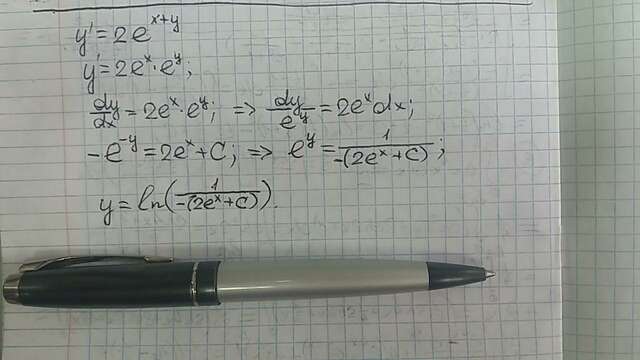 y' = 2e^{x+y}
y' = 2e^x · e^y;
dy/dx = 2e^x · e^y; => dy/e^y = 2e^x dx;
-e^{-y} = 2e^x + C; => e^y = 1/(-(2e^x + C));
y = ln(1/(-(2e^x + C))).